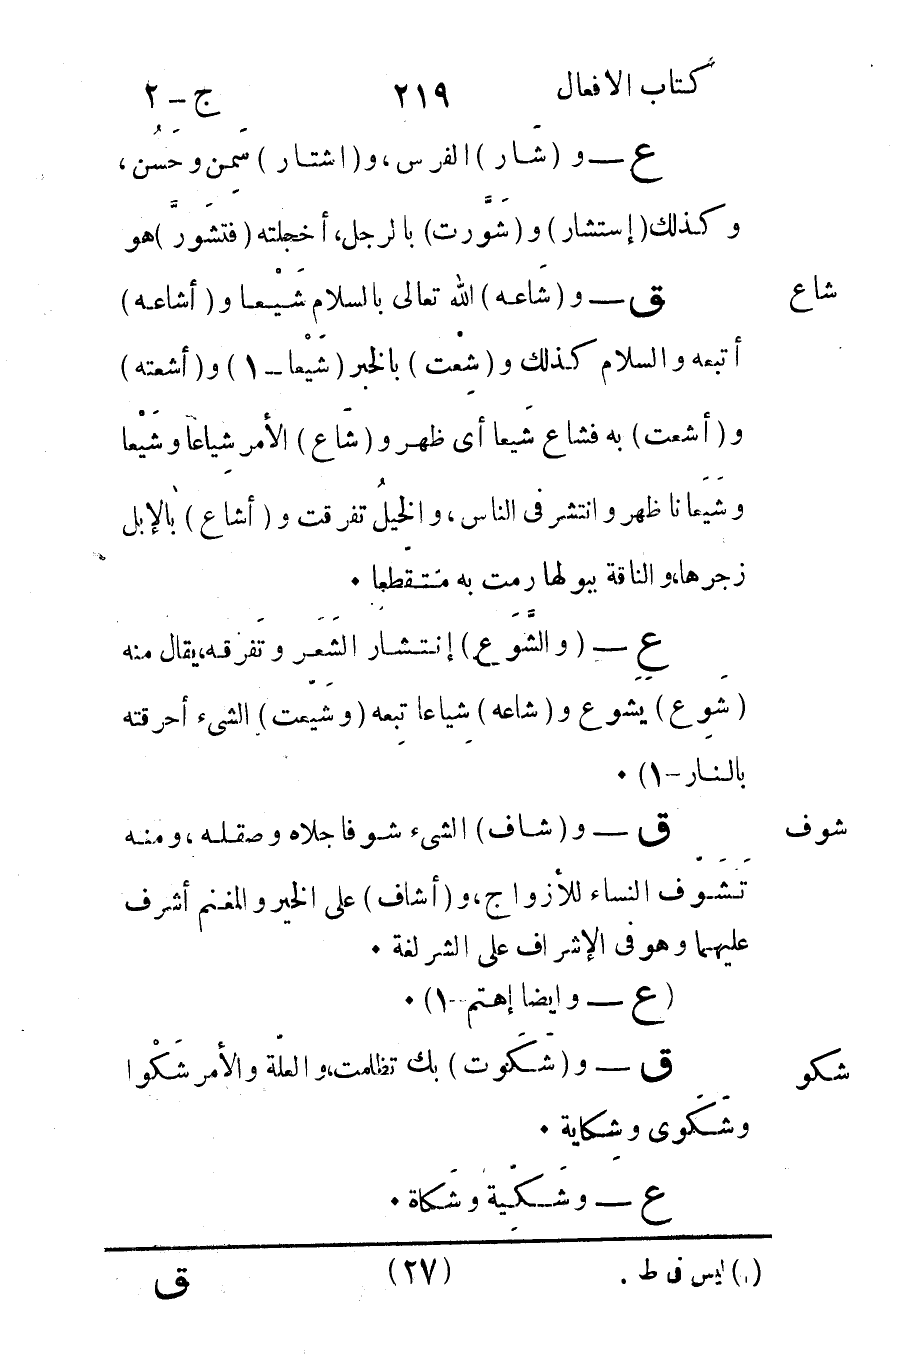 كتاب الافعال ٢١٩ ج - ٢
ع — و (شَار) الفرس، و(اشتار) سَمِن وحَسُن،
وكذلك (إستشار) و(شَوَّرت) بالرجل، أخجلته (فتشَوَّر) هو
شاع ق — و(شَاعه) الله تعالى بالسلام شَيْعا و(أشاعه)
أتبعه والسلام كذلك و(شِعْت) بالخبر (شَيْعا - ١) و(أشعته)
و(أشعت) به فشاع شَيعا أى ظهر و(شَاع) الأمر شِياعا وشَيْعا
وشَيَعانا ظهر وانتشر فى الناس، والخيلُ تفرقت و(أشاع) بالإبل
زجرها، والناقة ببولها رمت به متَقطعا ٠
ع — (والشَّوَع) إنتشار الشَعَر وتَفرقه، يقال منه
(شَوِع) يشوَع و(شاعه) شِياعا تَبِعه (وشَيّعت) الشىء أحرقته
بالنار - ١) ٠
شوف ق — و(شاف) الشىء شوفا جلاه وصقله، ومنه
تَشَوَّف النساء للأزواج، و(أشاف) على الخير والمغنم أشرف
عليهما وهو فى الإشراف على الشر لغة ٠
(ع — وايضا إهتم - ١) ٠
شكو ق — و(شَكَوت) بك تظلمت، والعلّة والأمر شَكْوا
وشَكَوى وشِكاية ٠
ع — وشَكِيّة وشَكاة ٠
(١) ليس فى ط .
(٢٧) ق